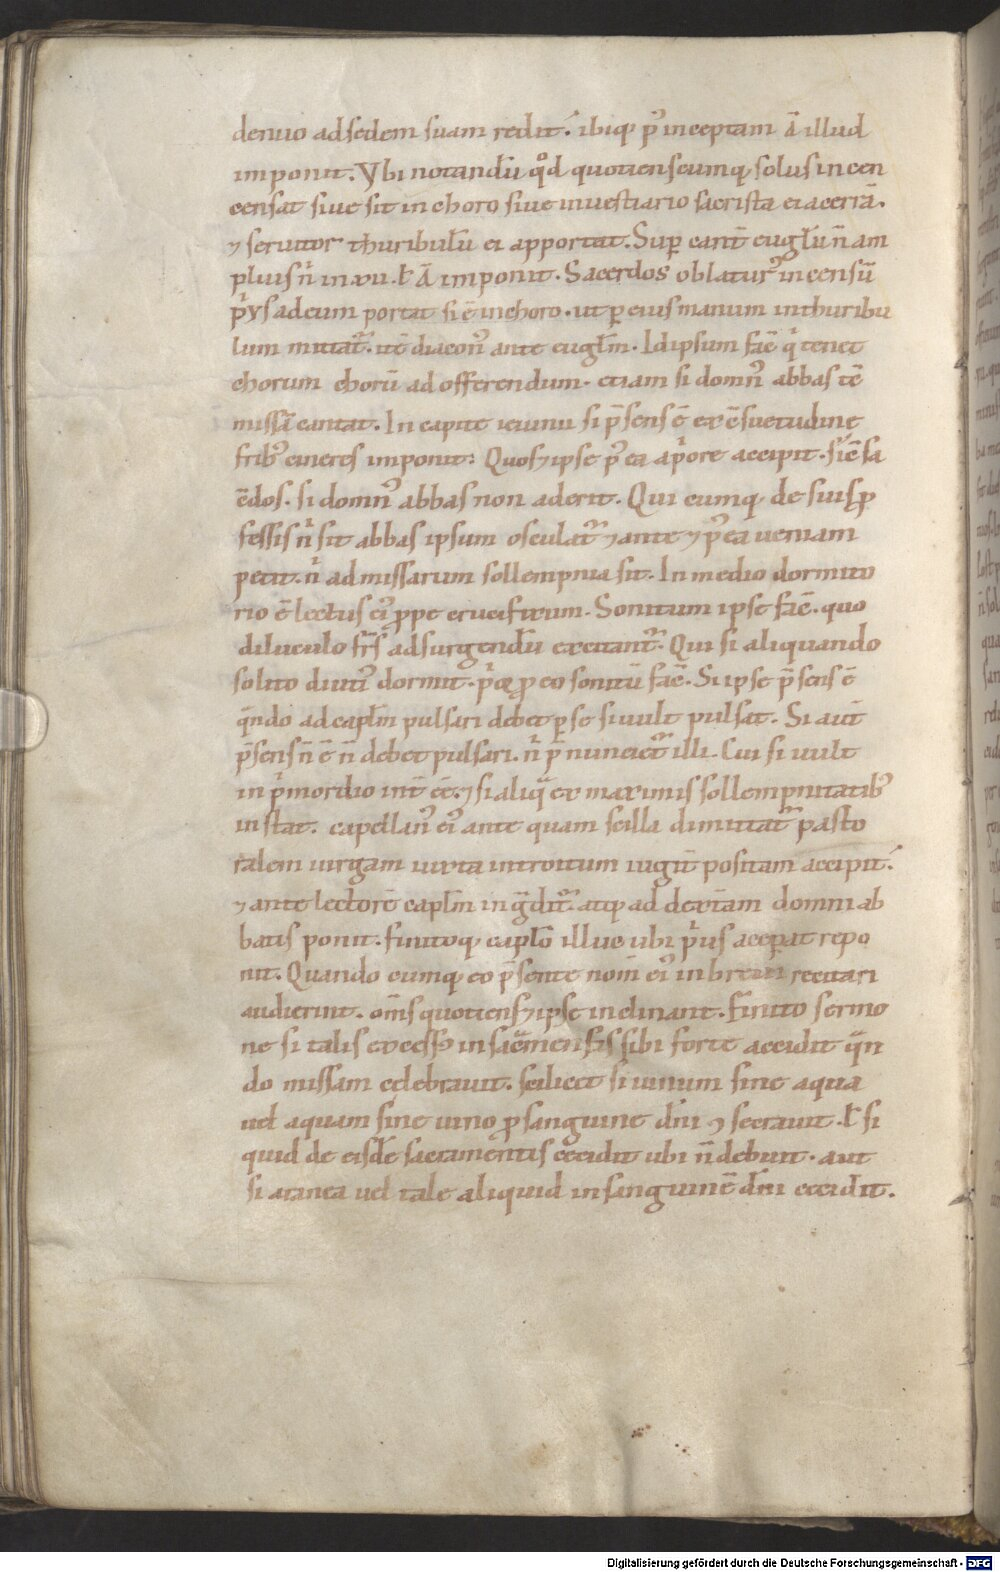 denuo ad sedem suam redit. ibiq; p̄ inceptam ā illud
imponit. Vbi notandū qđ quotienscumq; solus incen
censat siue sit in choro siue in uestiario sacrista ei acerrā.
⁊ seruitor thuribulū ei apportat. Sup̱ cant̄ euglm̄ n̄ am
plius n̄ in xv. ł ā imponit. Sacerdos oblatur᷒ incensū
ad eum portat si ē in choro. ut p̱ eius manum in thuribu
lum mittat᷑. itē diacon᷒ ante euglm̄. Id ipsum facē q̇ tenet
chorum chorū ad offerendum. etiam si domn᷒ abbas tē
missā cantat. In capite ieiunii si p̄sens ē ex c̄suetudine
frib᷒ cineres imponit. Quos ⁊ ipse p᷒ ea a p̓ore accipit. sic̄ sa
c̄dos. si domn᷒ abbas non aderit. Qui cumq; de suis ꝓ
fessis n̓ sit abbas ipsum osculat᷑ ⁊ ante ⁊ p᷒ ea ueniam
petit. n̓ ad missarum sollempnia sit. In medio dormito
rio ē lectus ei᷒ ꝓpe crucifixum. Sonitum ipse facē. quo
diluculo fr̄s ad surgendū excitant᷑. Qui si aliquando
solito diuti᷒ dormit. p̓or ꝓ eo sonitū facē. Si ipse p̄sens ē
q̄ndo ad caplm̄ pulsari debet p̱ se si uult pulsat. Si aut̄
p̄sens n̄ ē n̄ debet pulsari. n̓ p̄ nunciet᷑ illi. Cui si uult
in p̓mordio int̄ eē. ⁊ si aliq̄ ex maximis sollempnitatib᷒
instat. capellan᷒ ei᷒ ante quam scilla dimittat᷑ pasto
ralem uirgam iuxta introitum iugit̄ positam accipit.
⁊ ante lectorē caplm̄ ingdit᷑. atq; ad dext̄am domni ab
batis ponit. finitoq; caplo᷒ illuc ubi p̓us acceꝑat repo
nit. Quando cumq; eo p̄sente nom̄ ei᷒ in breui recitari
audierint. om̄s quotiens ⁊ ipse inclinant. Finito sermo
ne si talis excess᷒ in sacmentis sibi forte accidit q̄n
do missam celebrauit. scilicet si uinum sine aqua
uel aquam sine uino ꝓ sanguine dn̄i ⁊secrauit. ł si
quid de eisdē sacramentis cecidit ubi n̄ debuit. aut
si aranea uel tale aliquid in sanguinē dn̄i cecidit.
Digitalisierung gefördert durch die Deutsche Forschungsgemeinschaft - DFG